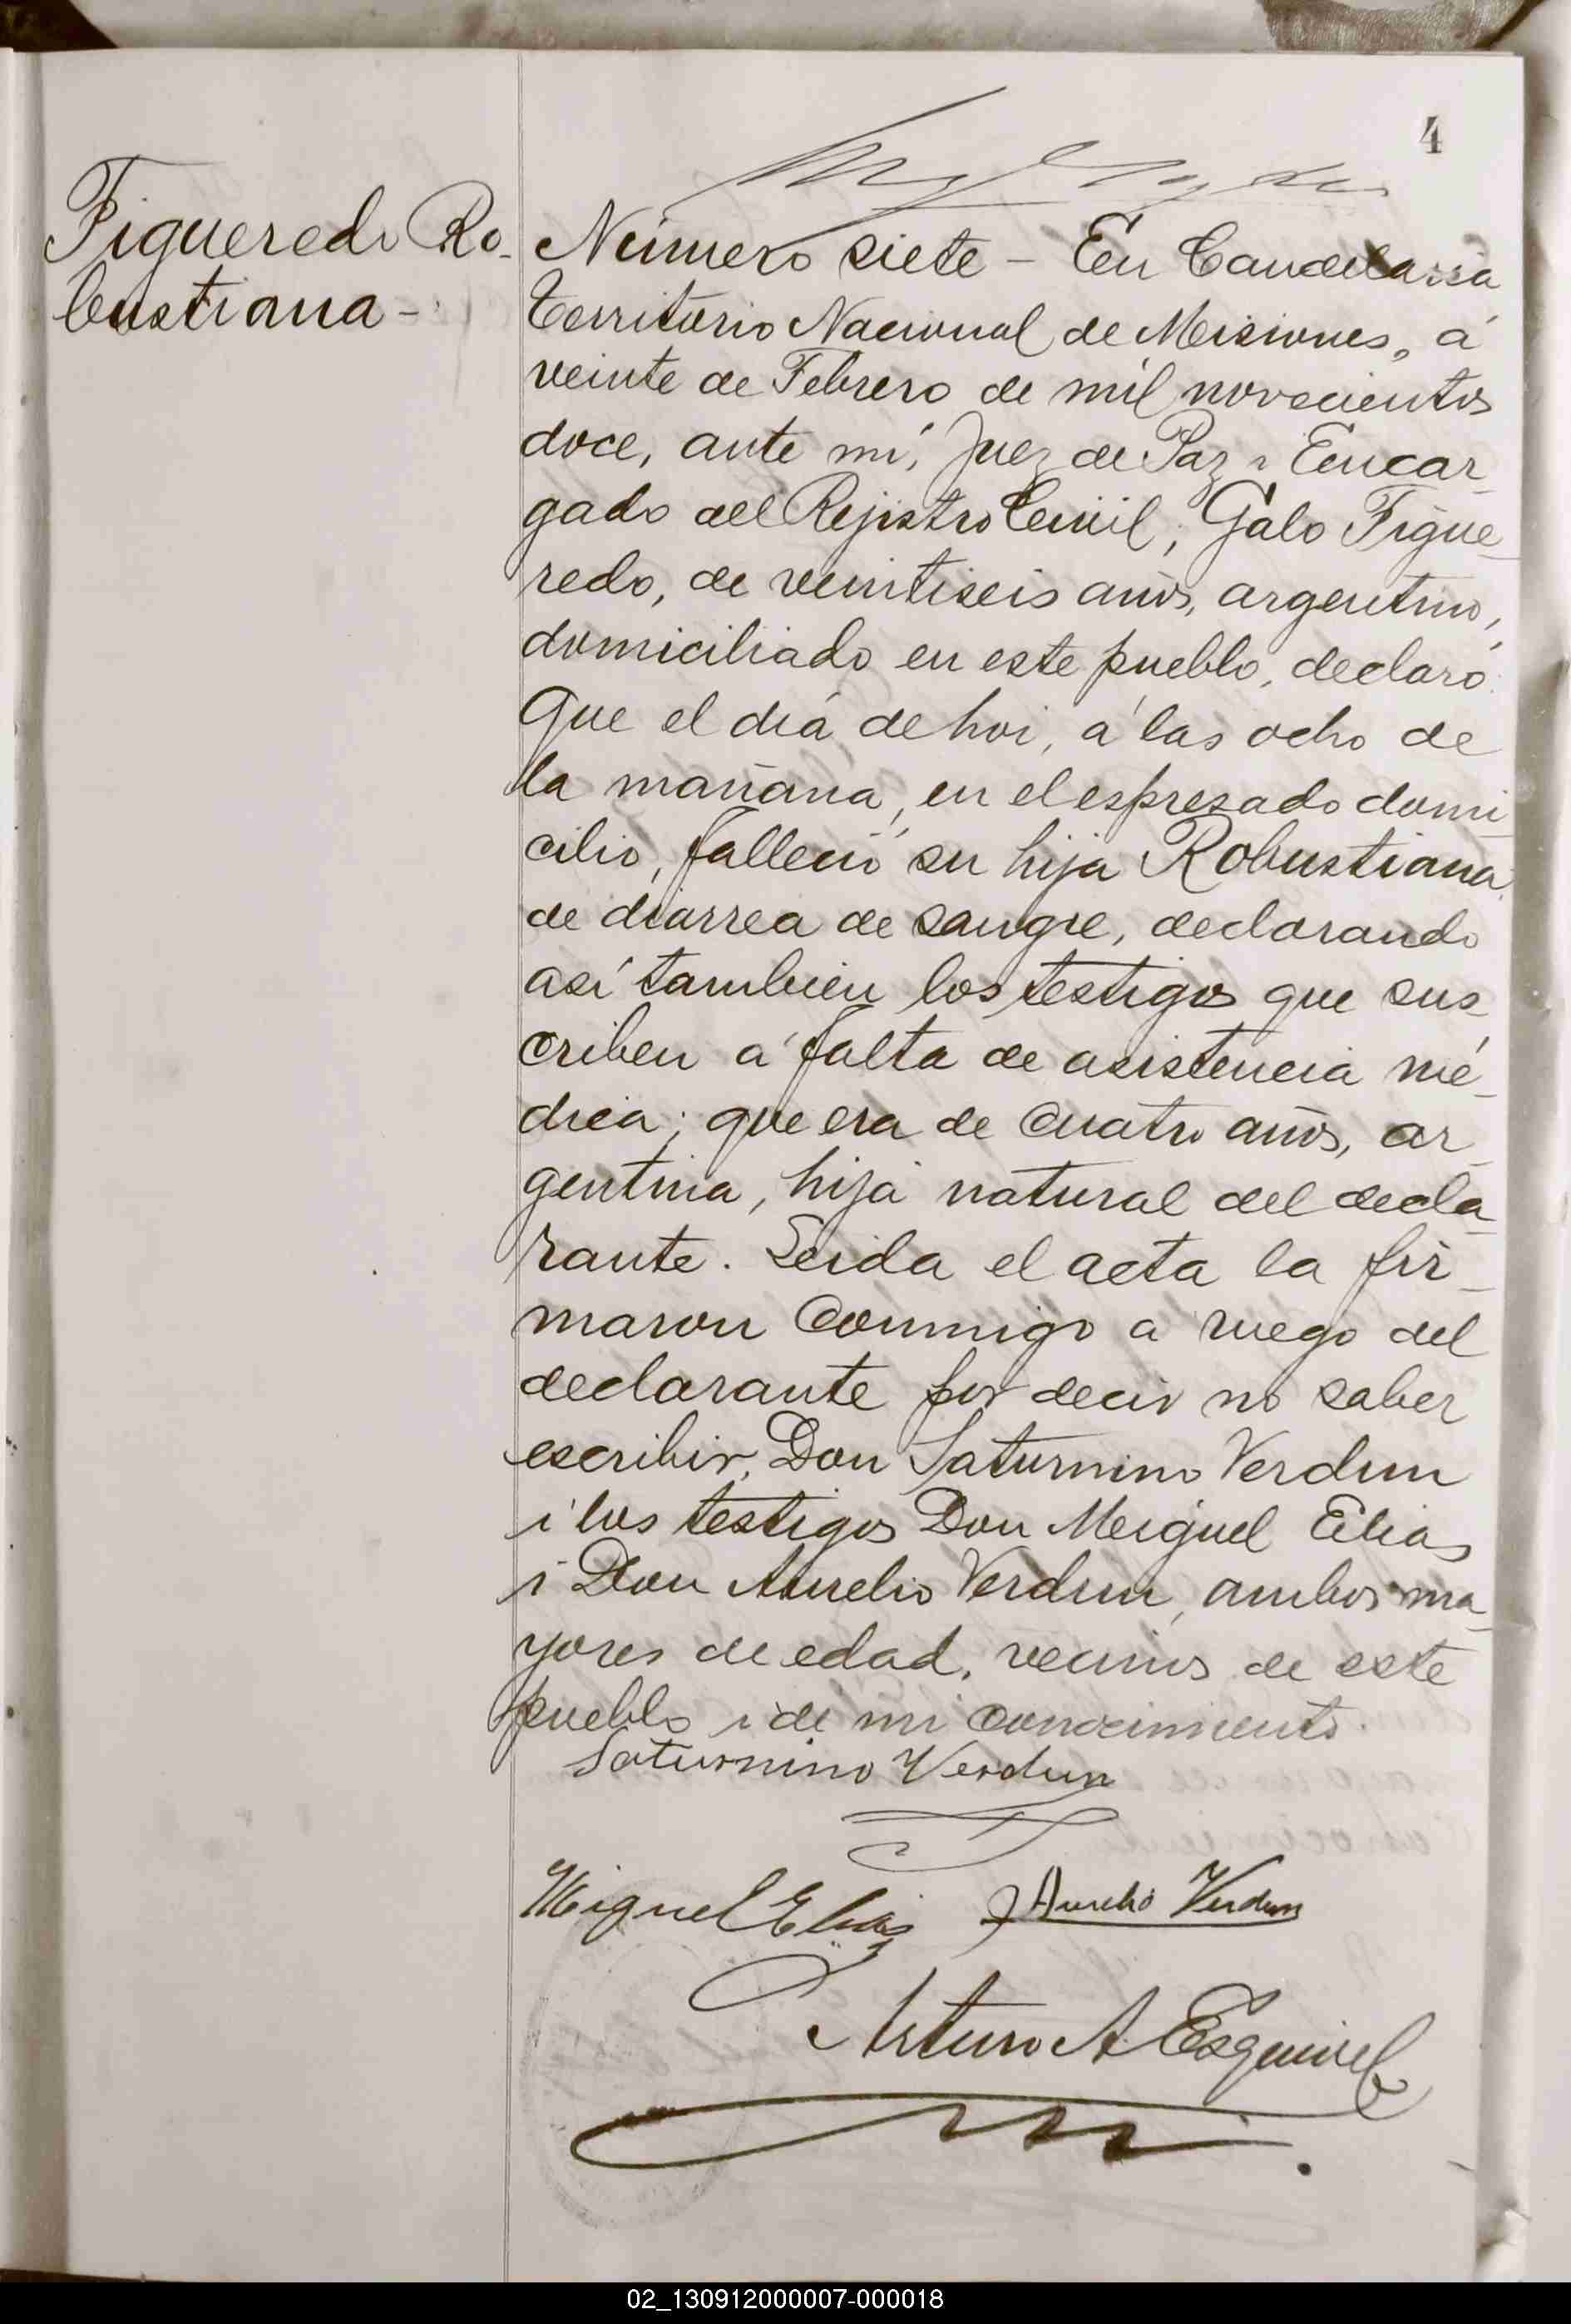 4
Figueredo Ro-
bustiana-
Número siete - En Candelaria
Territorio Nacional de Misiones, á
veinte de Febrero de mil novecientos
doce, ante mí, Juez de Paz i Encar-
gado del Rejistro Civil, Galo Figue-
redo, de veintiseis años, argentino,
domiciliado en este pueblo, declaró:
Que el día de hoi, á las ocho de
la mañana, en el espresado domi-
cilio, falleció su hija Robustiana,
de diarrea de sangre, declarando
así tambien los testigos que sus-
criben a falta de asistencia mé-
dica; que era de cuatro años, ar-
gentina, hija natural del decla-
rante. Leida el acta la fir-
maron conmigo a ruego del
declarante por decir no saber
escribir, Don Saturnino Verdun
i los testigos Don Miguel Elias
i Don Aurelio Verdun, ambos ma-
yores de edad, vecinos de este
pueblo i de mi conocimiento.
Saturnino Verdun
Miguel Elias
Aurelio Verdun
Arturo A Esquivel
02_130912000007-000018